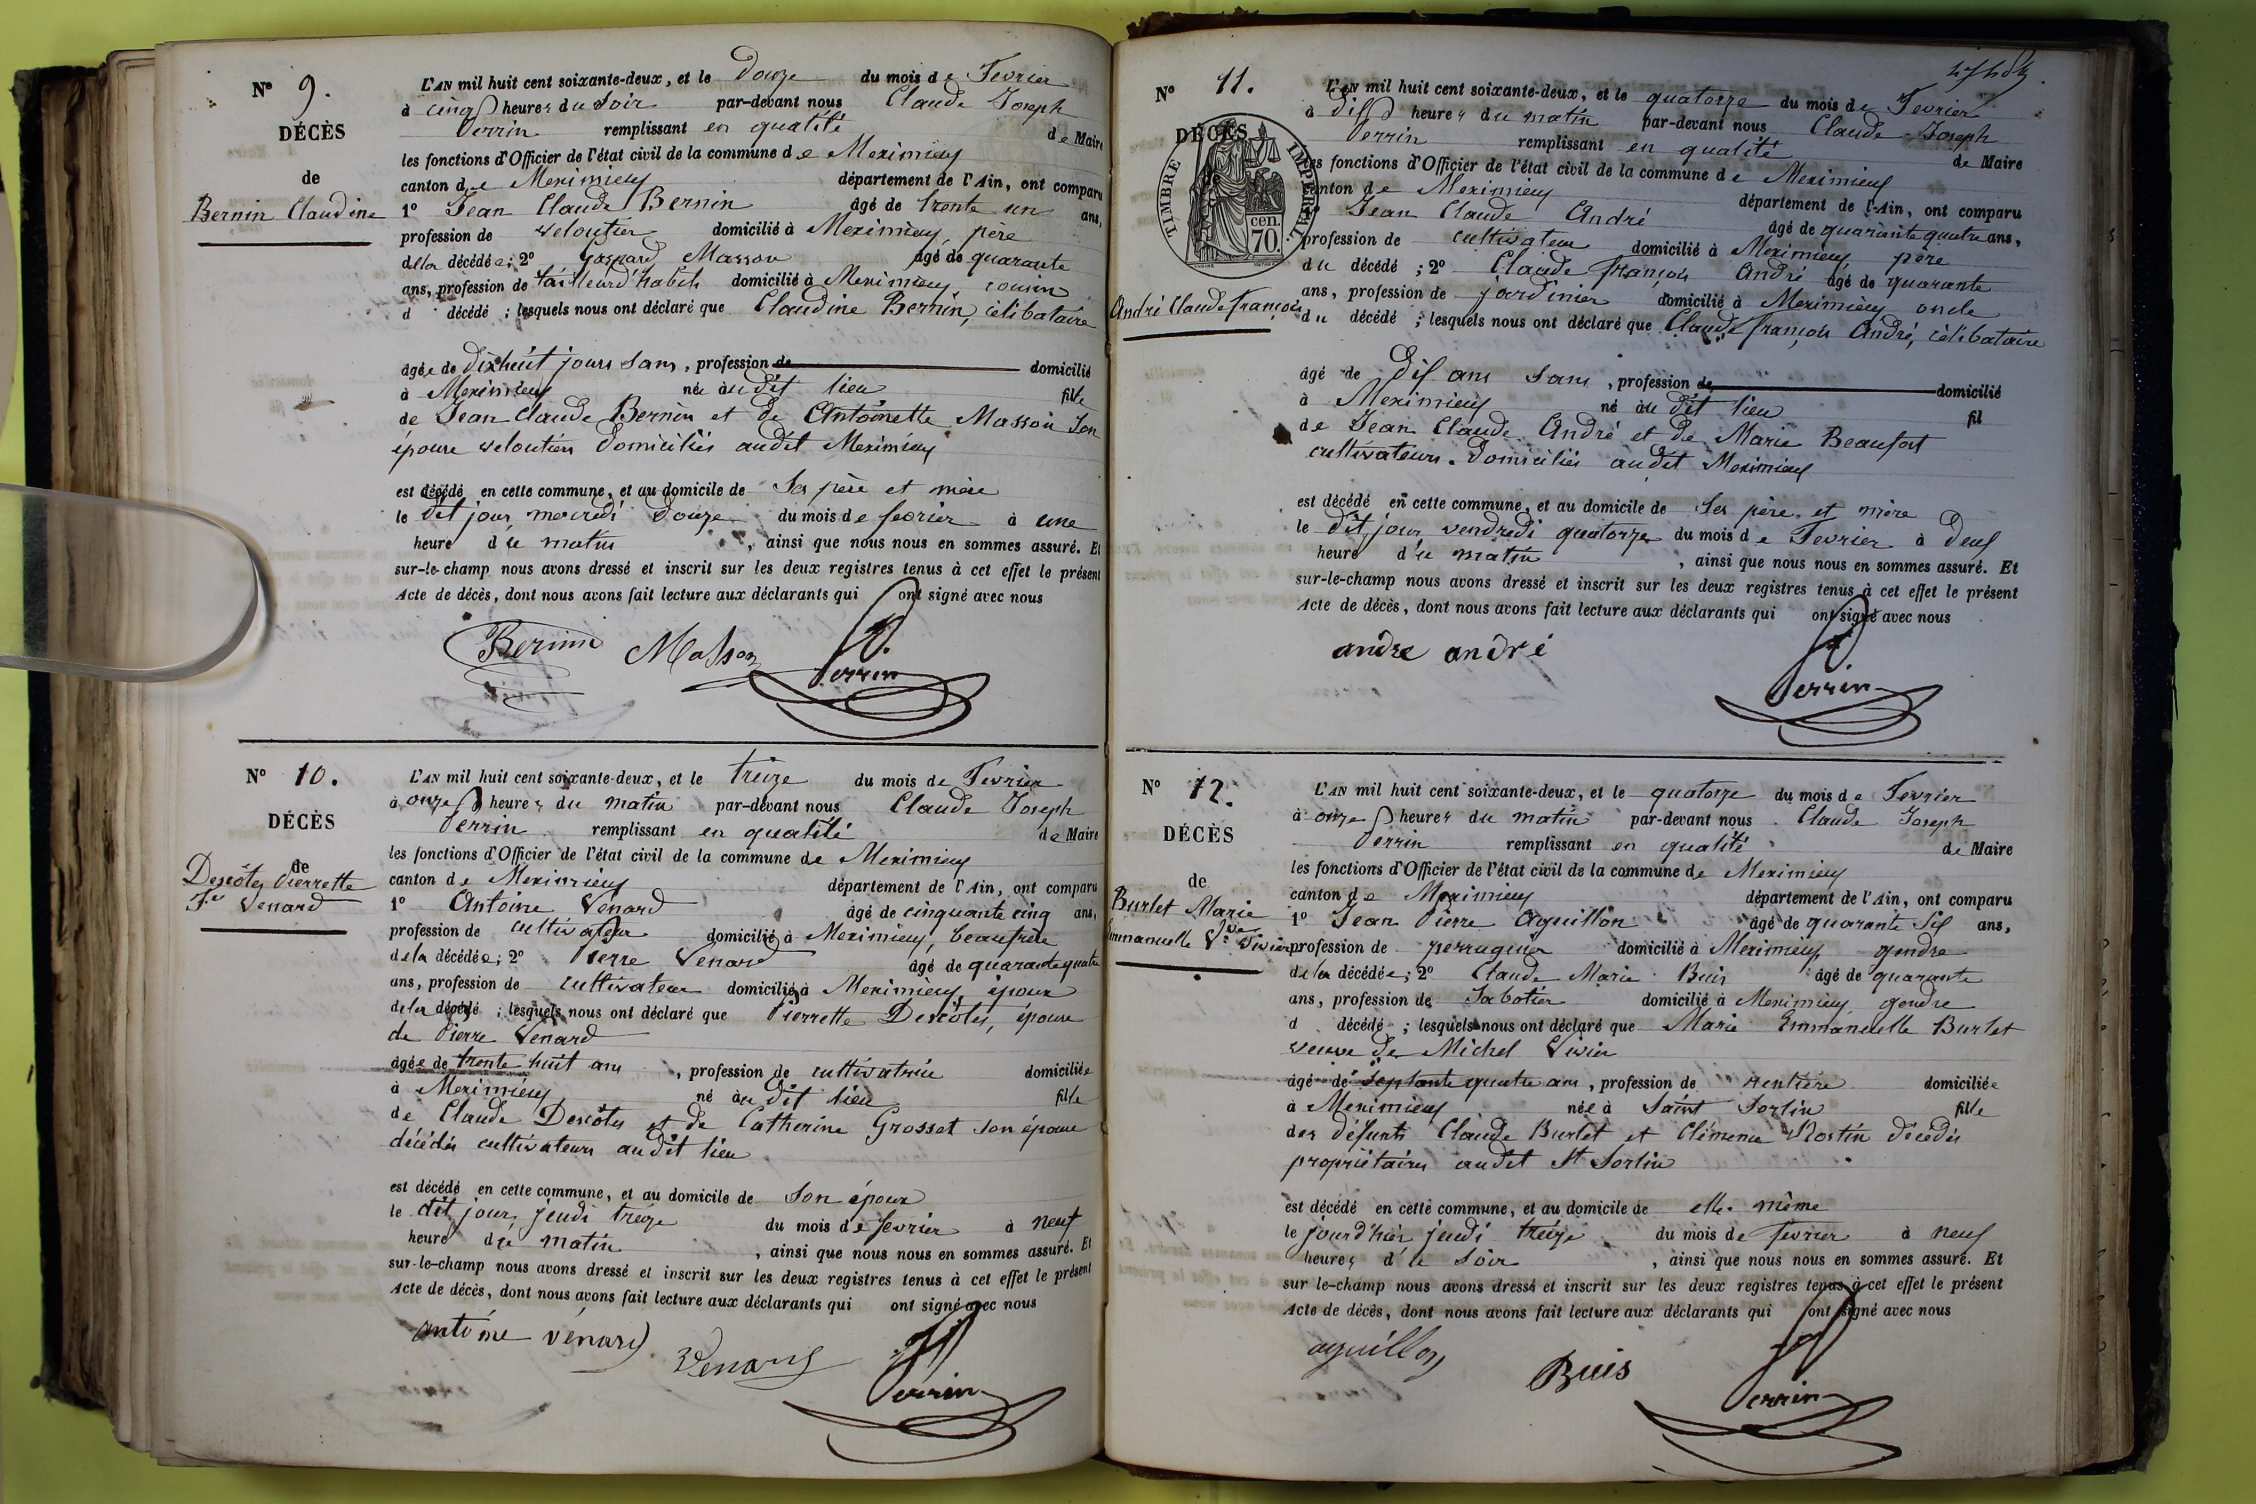 N° 9.
DÉCÈS
de
Bernin Claudine
L'AN mil huit cent soixante-deux, et le douze du mois de Fevrier
à cinq heures du soir par-devant nous Claude Joseph
Perrin remplissant en qualité de Maire
les fonctions d'Officier de l'état civil de la commune de Meximieux
canton de Meximieux département de l'Ain, ont comparu
1° Jean Claude Bernin âgé de trente un ans,
profession de veloutier domicilié à Meximieux, père
de la décédée; 2° Gaspard Masson âgé de quarante
ans, profession de tailleur d'habits domicilié à Meximieux, cousin
d décédé ; lesquels nous ont déclaré que Claudine Bernin, célibataire
âgée de dixhuit jours sans, profession de domicilié
à Meximieux née au dit lieu fille
de Jean Claude Bernin et de Antoinette Masson son
épouse veloutiers domiciliés audit Meximieux
est décédé en cette commune, et au domicile de ses père et mère
le dit jour mercredi douze du mois de fevrier à une
heure du matin, ainsi que nous nous en sommes assuré. Et
sur-le-champ nous avons dressé et inscrit sur les deux registres tenus à cet effet le présent
Acte de décès, dont nous avons fait lecture aux déclarants qui ont signé avec nous
Bernin Masson Perrin
N° 10.
DÉCÈS
de
Descôtes Pierrette
Fe Venard
L'AN mil huit cent soixante-deux, et le treize du mois de Fevrier
à onze heures du matin par-devant nous Claude Joseph
Perrin remplissant en qualité de Maire
les fonctions d'Officier de l'état civil de la commune de Meximieux
canton de Meximieux département de l'Ain, ont comparu
1° Antoine Venard âgé de cinquante cinq ans,
profession de cultivateur domicilié à Meximieux, beaufrère
de la décédée; 2° Pierre Venard âgé de quarante quatre
ans, profession de cultivateur domicilié à Meximieux, époux
de la décédé ; lesquels nous ont déclaré que Pierrette Descôtes, épouse
de Pierre Venard
âgée de trente huit ans, profession de cultivatrice domiciliée
à Meximieux né au dit lieu fille
de Claude Descôtes et de Catherine Grosset son épouse
décédés cultivateurs audit lieu
est décédé en cette commune, et au domicile de son époux
le dit jour jeudi treize du mois de fevrier à neuf
heure du matin, ainsi que nous nous en sommes assuré. Et
sur-le-champ nous avons dressé et inscrit sur les deux registres tenus à cet effet le présent
Acte de décès, dont nous avons fait lecture aux déclarants qui ont signé avec nous
antoine vénard Venard Perrin
N° 11.
DÉCÈS
TIMBRE IMPÉRIAL
70 cen.
André Claude François
L'AN mil huit cent soixante-deux, et le quatorze du mois de Fevrier
à dix heures du matin par-devant nous Claude Joseph
Perrin remplissant en qualité de Maire
les fonctions d'Officier de l'état civil de la commune de Meximieux
canton de Meximieux département de l'Ain, ont comparu
Jean Claude André âgé de quarante quatre ans,
profession de cultivateur domicilié à Meximieux, père
du décédé ; 2° Claude françois André âgé de quarante
ans, profession de jardinier domicilié à Meximieux oncle
du décédé ; lesquels nous ont déclaré que Claude françois André, célibataire
âgé de dix ans sans, profession de domicilié
à Meximieux né au dit lieu fil
de Jean Claude André et de Marie Beaufort
cultivateurs domiciliés audit Meximieux
est décédé en cette commune, et au domicile de ses père et mère
le dit jour vendredi quatorze du mois de Fevrier à deux
heure du matin, ainsi que nous nous en sommes assuré. Et
sur-le-champ nous avons dressé et inscrit sur les deux registres tenus à cet effet le présent
Acte de décès, dont nous avons fait lecture aux déclarants qui ont signé avec nous
andre andré Perrin
N° 12.
DÉCÈS
de
Burlet Marie
Emmanuelle Vve Vivier
L'AN mil huit cent soixante-deux, et le quatorze du mois de Fevrier
à onze heures du matin par-devant nous Claude Joseph
Perrin remplissant en qualité de Maire
les fonctions d'Officier de l'état civil de la commune de Meximieux
canton de Meximieux département de l'Ain, ont comparu
1° Jean Pierre Aguillon âgé de quarante six ans,
profession de perruquier domicilié à Meximieux gendre
de la décédée; 2° Claude Marie Buis âgé de quarante
ans, profession de Sabotier domicilié à Meximieux, gendre
d décédé ; lesquels nous ont déclaré que Marie Emmanuelle Burlet
veuve de Michel Vivier
âgé de septante quatre ans, profession de rentière domiciliée
à Meximieux née à Saint Sorlin fille
des défunts Claude Burlet et Clémence décédés
propriétaires audit St Sorlin
est décédé en cette commune, et au domicile de elle même
le jour d'hier jeudi treize du mois de fevrier à neuf
heures du soir, ainsi que nous nous en sommes assuré. Et
sur le-champ nous avons dressé et inscrit sur les deux registres tenus à cet effet le présent
Acte de décès, dont nous avons fait lecture aux déclarants qui ont signé avec nous
aguillon Buis Perrin